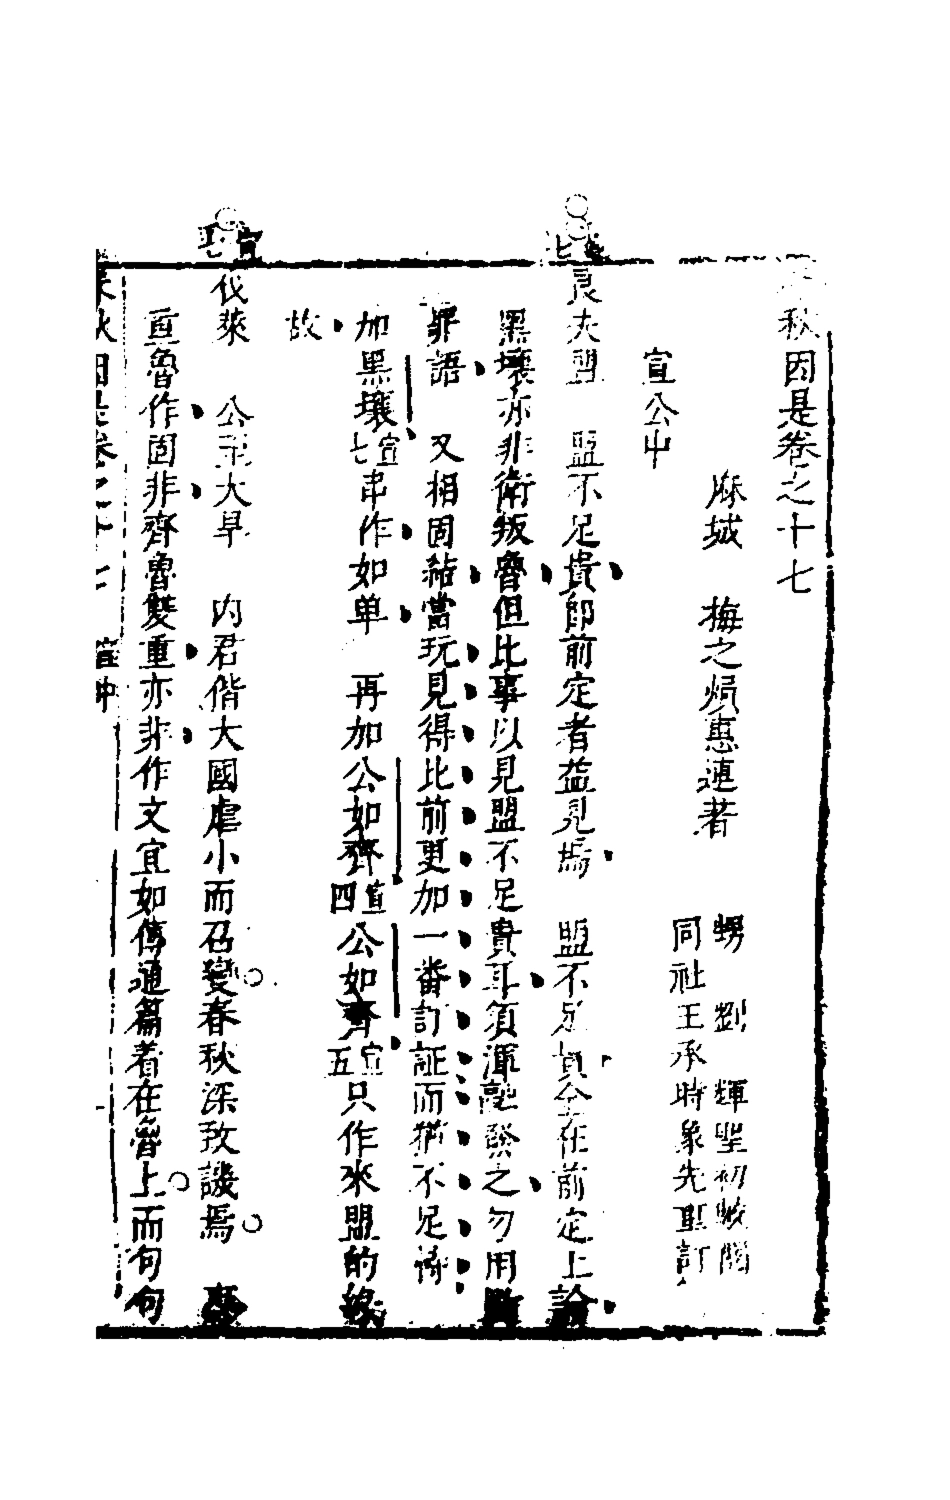 秋因是卷之十七
麻城　梅之熉惠連著
甥　劉　輝聖初較閱
同社王承時象先重訂
宣公中
宣七
良夫盟　盟不足貴即前定者益見焉　盟不足貴全在前定上論
黑壤亦非衛叛魯但比事以見盟不足貴耳須渾融發之勿用
罪語　又相固結當玩見得比前更加一番訂証而猶不足恃
加黑壤宣七串作如单　再加公如齊宣四公如齊宣五只作來盟的緣
故
宣七
伐萊　公至大旱　內君偕大國虐小而召變春秋深致譏焉
重魯作固非齊魯雙重亦非作文宜如傳通篇着在魯上而句句
秋因是卷之十七　宣中